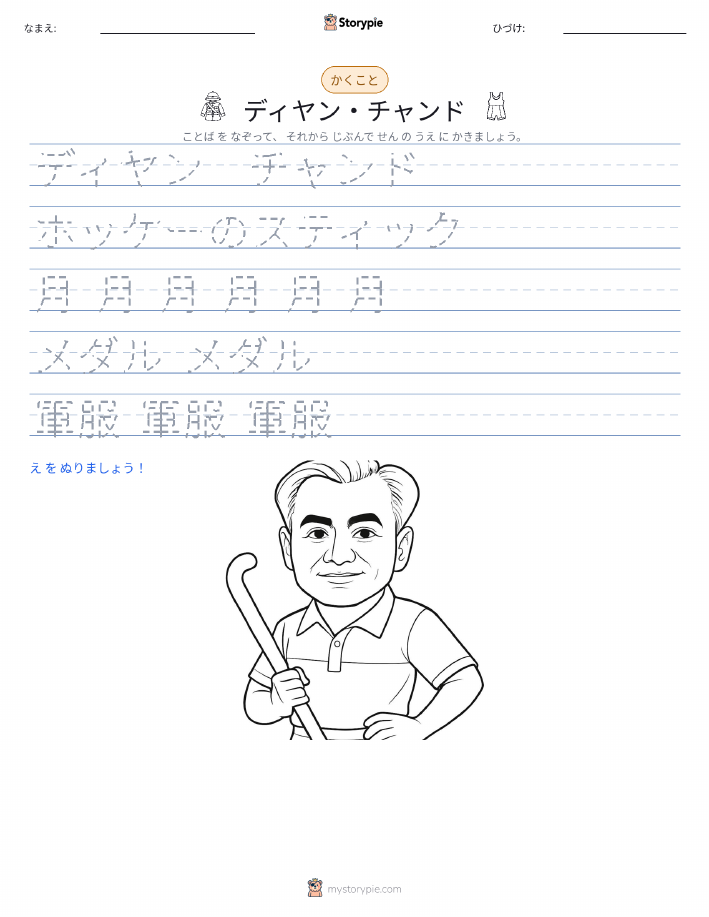 なまえ:
Storypie
ひづけ:
かくこと
ディヤン・チャンド
ことば を なぞって、 それから じぶんで せん の うえ に かきましょう。
ディヤン チャンド
ホッケーのスティック
月 月 月 月 月 月
メダル メダル
軍服 軍服 軍服
え を ぬりましょう！
mystorypie.com